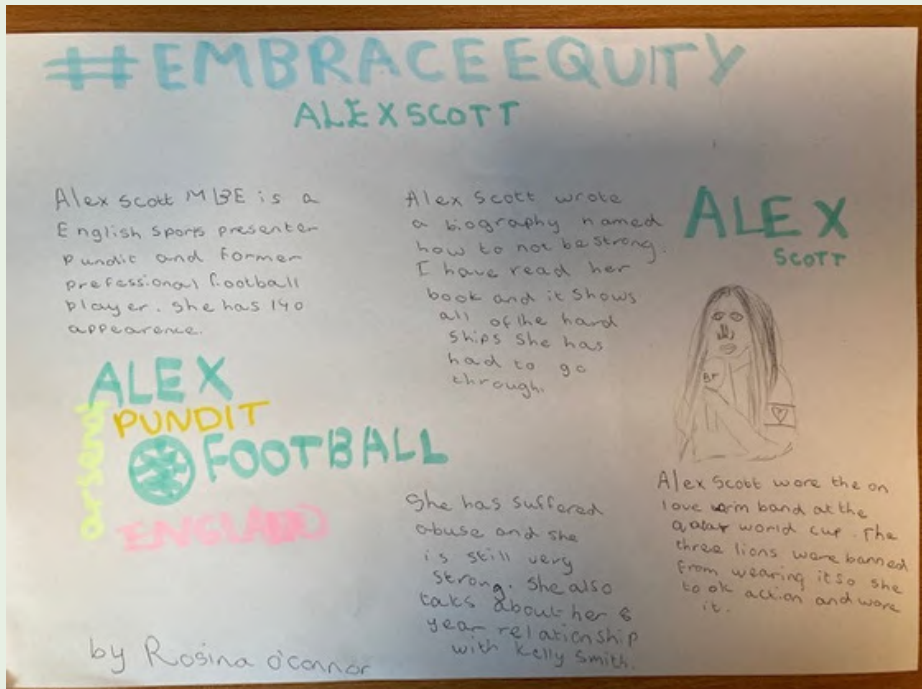 #EMBRACEEQUITY
ALEX SCOTT
Alex Scott MBE is a
English sports presenter
pundit and former
prefessional football
player. She has 140
appearence.
ALEX
PUNDIT
arsenal
FOOTBALL
ENGLAND
Alex Scott wrote
a biography named
how to not be strong.
I have read her
book and it shows
all of the hard
ships she has
had to go
through.
She has suffered
abuse and she
is still very
strong. She also
talks about her 8
year relationship
with Kelly Smith.
ALEX
SCOTT
Alex Scott wore the on
love arm band at the
qatar world cup. The
three lions were banned
from wearing it so she
took action and wore
it.
by Rosina o'connor